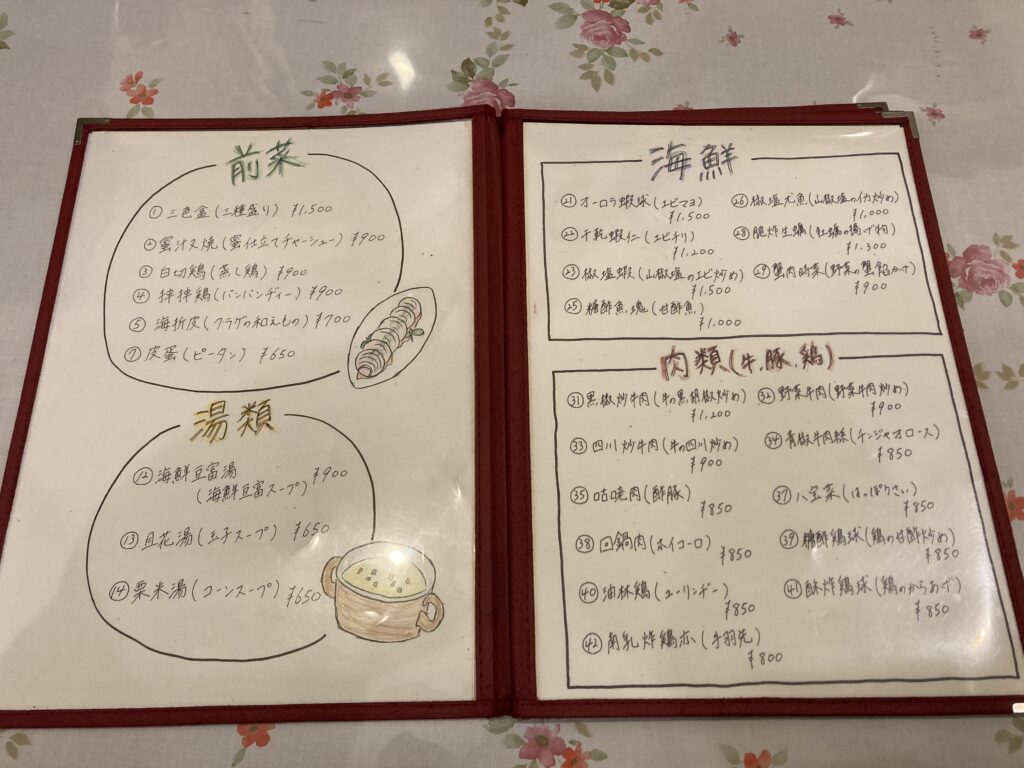 前菜
① 三色盒(三種盛り) ¥1,500
② 蜜汁叉焼(蜜仕立てチャーシュー) ¥900
③ 白切鶏(蒸し鶏) ¥900
④ 拌拌鶏(バンバンヂィー) ¥900
⑤ 海折皮(クラゲの和えもの) ¥700
⑦ 皮蛋(ピータン) ¥650
湯類
⑫ 海鮮豆富湯 ¥900
(海鮮豆富スープ)
⑬ 旦花湯(玉子スープ) ¥650
⑭ 粟米湯(コーンスープ) ¥650
海鮮
㉑ オーロラ蝦球(エビマヨ)
¥1,500
㉒ 干乾蝦仁(エビチリ)
¥1,200
㉓ 椒塩蝦(山椒塩のエビ炒め)
¥1,500
㉕ 糖醋魚塊(甘酢魚)
¥1,000
㉖ 椒塩尤魚(山椒塩のイカ炒め)
¥1,000
㉘ 脆炸生蠣(牡蠣の揚げ物)
¥1,300
㉙ 蟹肉時菜(野菜の蟹餡かけ)
¥900
肉類(牛,豚,鶏)
㉛ 黒椒炒牛肉(牛の黒胡椒炒め)
¥1,200
㉜ 野菜牛肉(野菜牛肉炒め)
¥900
㉝ 四川炒牛肉(牛の四川炒め)
¥900
㉞ 青椒牛肉絲(チンジャオロース)
¥850
㉟ 咕咾肉(酢豚)
¥850
㊲ 八宝菜(はっぽうさい)
¥850
㊳ 回鍋肉(ホイコーロ)
¥850
㊴ 糖酢鶏球(鶏の甘酢炒め)
¥850
㊵ 油林鶏(ユーリンヂー)
¥850
㊶ 酥炸鶏球(鶏のからあげ)
¥850
㊷ 南乳炸鶏亦(手羽先)
¥800